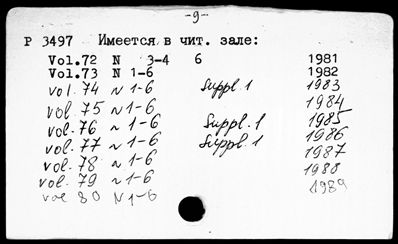 -9-
P 3497 Имеется в чит. зале:
Vol.72 N 3-4 6 1981
Vol.73 N 1-6 1982
vol. 74 N 1-6 Suppl. 1 1983
vol. 75 N 1-6 1984
vol. 76 N 1-6 Suppl. 1 1985
vol. 77 N 1-6 Suppl. 1 1986
vol. 78 N 1-6 1987
vol. 79 N 1-6 1988
vol 80 N 1-6 1989